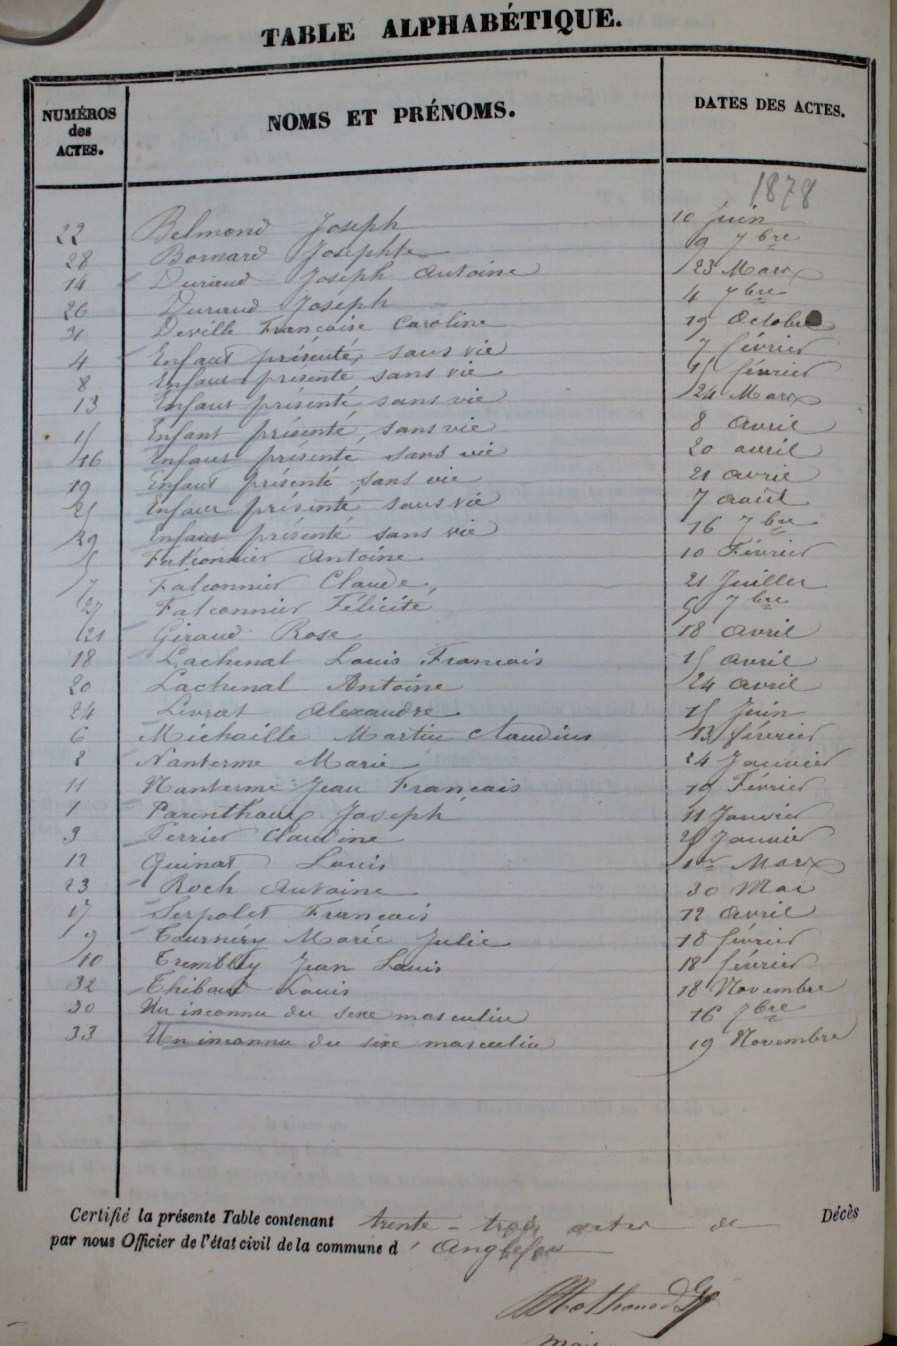 TABLE ALPHABÉTIQUE.
NUMÉROS des ACTES. NOMS ET PRÉNOMS. DATES DES ACTES.
1878
22 Belmond Joseph 10 Juin
28 Bornard Josephte 9 7bre
14 Durand Joseph Antoine 23 Mars
26 Durand Joseph 4 7bre
31 Deville Françoise Caroline 19 Octobre
4 Enfant présenté sans vie 7 février
8 Enfant présenté sans vie 15 février
13 Enfant présenté sans vie 24 Mars
15 Enfant présenté sans vie 8 avril
16 Enfant présenté sans vie 20 avril
19 Enfant présenté sans vie 21 avril
25 Enfant présenté sans vie 7 août
29 Enfant présenté sans vie 16 7bre
5 Falconnier Antoine 10 Février
7 Falconnier Claude 21 Juillet
27 Falconnier Félicité 5 7bre
21 Giraud Rose 18 avril
18 Lachenal Louis François 15 avril
20 Lachenal Antoine 24 avril
24 Livrat Alexandre 15 Juin
6 Michaille Martin Claudius 13 février
2 Nanterme Marie 24 Janvier
11 Nanterme Jean François 19 Février
1 Parenthoux Joseph 11 Janvier
3 Perrier Claudine 25 Janvier
12 Quinat Louis 1er Mars
23 Roch Antoine 30 Mai
17 Serpolet François 12 avril
9 Tournéry Marie Julie 18 février
10 Trembley Jean Louis 18 février
32 Thibaut Louis 18 Novembre
30 Un inconnu du sexe masculin 16 7bre
33 Un inconnu du sexe masculin 19 Novembre
Certifié la présente Table contenant trente-trois actes de Décès
par nous Officier de l'état civil de la commune d'Anglefort